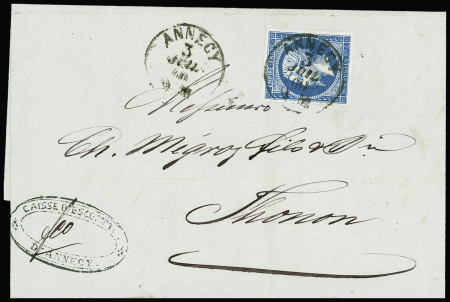 ANNECY
3
JUIL
ANNECY
3
JUIL
Messieurs
Ch. Mégroz fils & Cie
Thonon
CAISSE D'ESCOMPTE
D'ANNECY